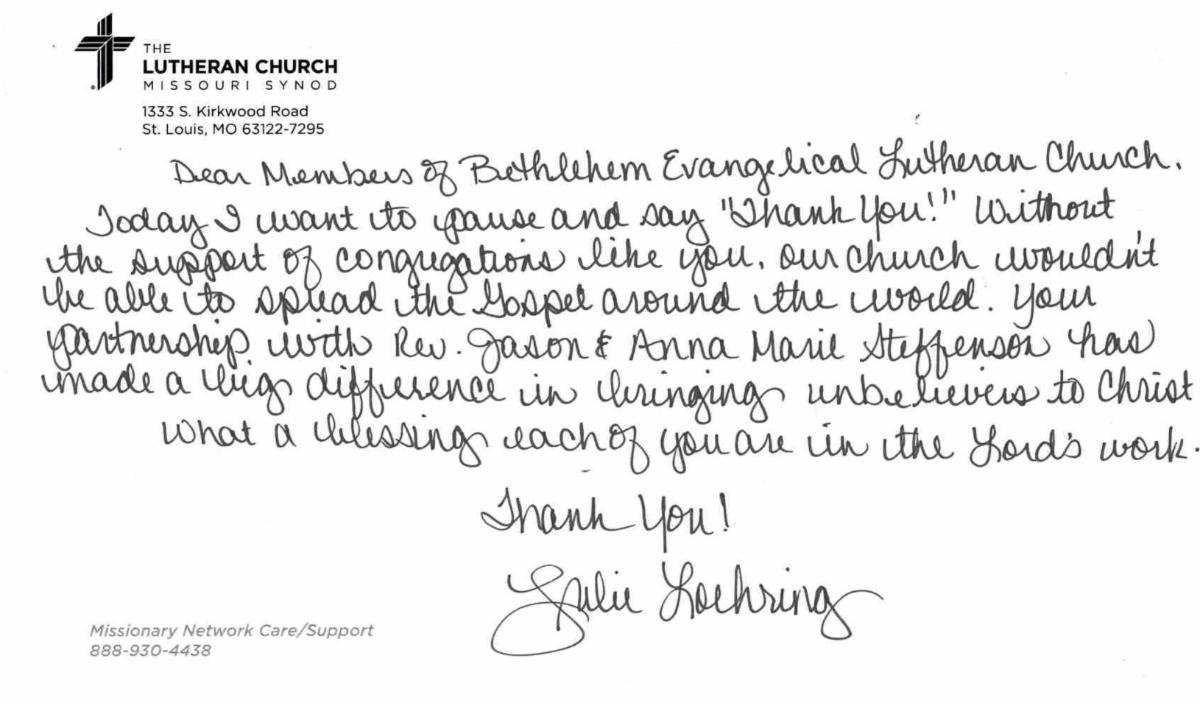 THE
LUTHERAN CHURCH
MISSOURI SYNOD
1333 S. Kirkwood Road
St. Louis, MO 63122-7295
Dear Members of Bethlehem Evangelical Lutheran Church,
Today I want to pause and say "Thank You!" Without
the support of congregations like you, our church wouldn't
be able to spread the Gospel around the world. Your
partnership with Rev. Jason & Anna Marie Steffenson has
made a big difference in bringing unbelievers to Christ
What a blessing each of you are in the Lord's work.
Thank You!
Julie Loehring
Missionary Network Care/Support
888-930-4438